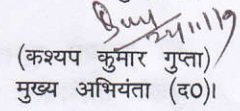 24/11/19
(कश्यप कुमार गुप्ता)
मुख्य अभियंता (द०)।